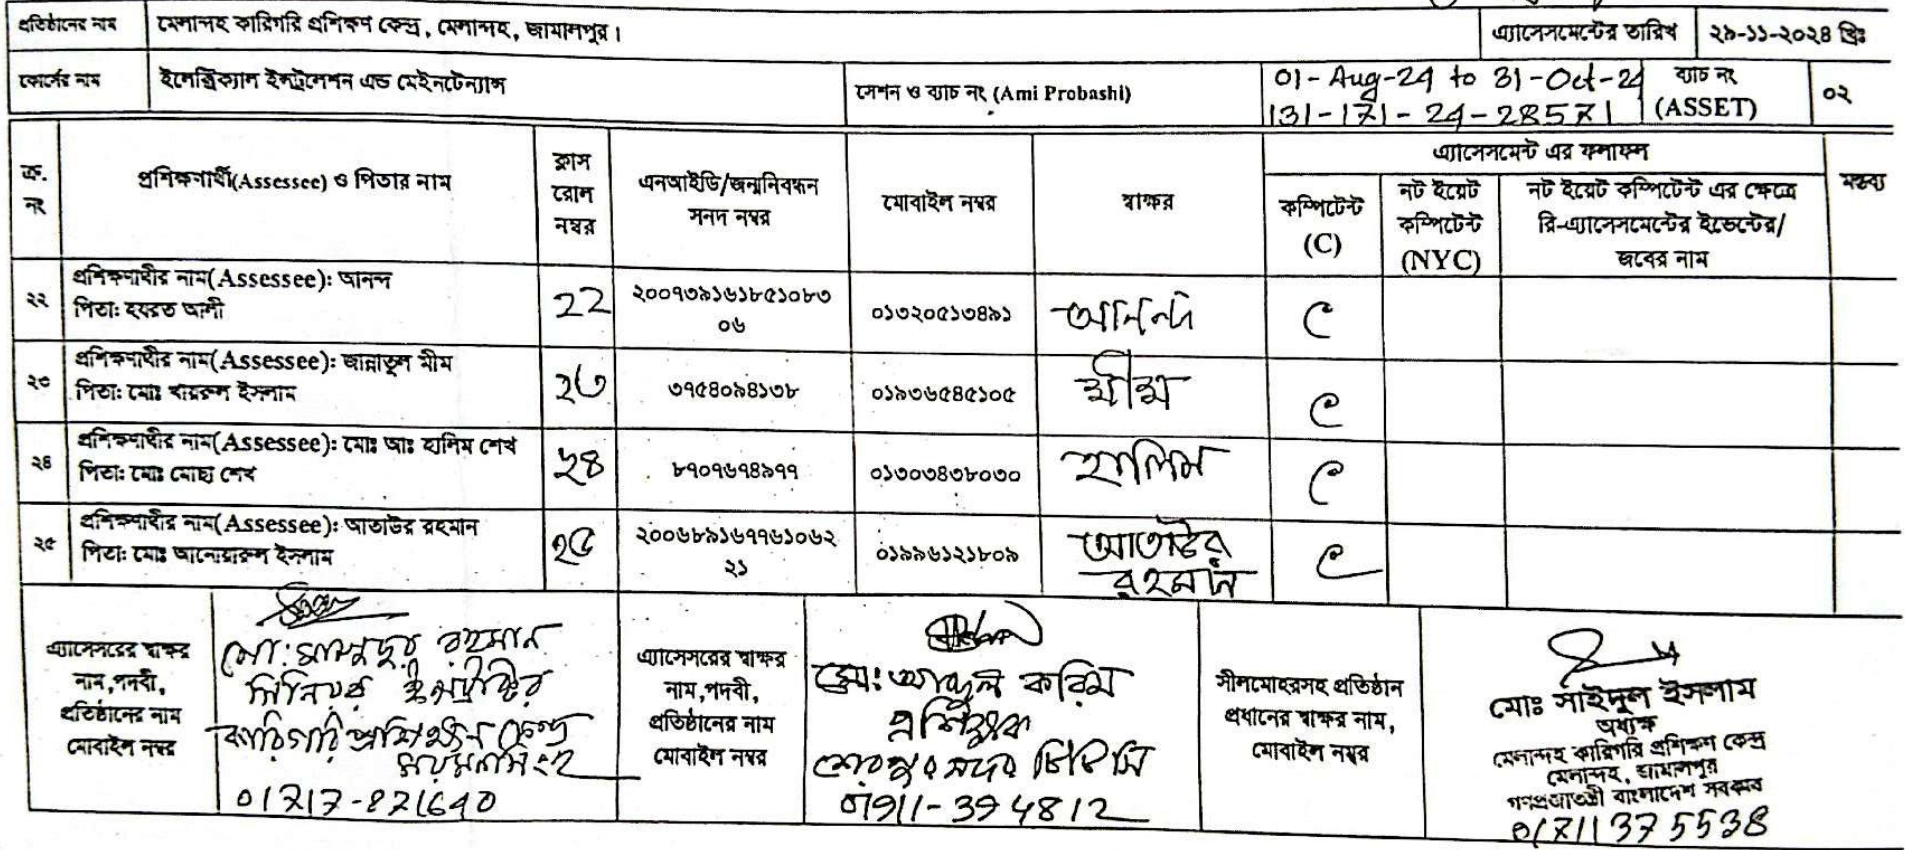 প্রতিষ্ঠানের নাম মেলান্দহ কারিগরি প্রশিক্ষণ কেন্দ্র, মেলান্দহ, জামালপুর। এ্যাসেসমেন্টের তারিখ ২৯-১১-২০২৪ খ্রিঃ
কোর্সের নাম ইলেক্ট্রিক্যাল ইন্সটলেশন এন্ড মেইনটেন্যান্স সেশন ও ব্যাচ নং (Ami Probashi) 01-Aug-24 to 31-Oct-24 ব্যাচ নং ০২
131-171-24-28571 (ASSET)
ক্র. নং প্রশিক্ষণার্থী(Assessee) ও পিতার নাম ক্লাস রোল নম্বর এনআইডি/জন্মনিবন্ধন সনদ নম্বর মোবাইল নম্বর স্বাক্ষর এ্যাসেসমেন্ট এর ফলাফল মন্তব্য
কম্পিটেন্ট (C) নট ইয়েট কম্পিটেন্ট (NYC) নট ইয়েট কম্পিটেন্ট এর ক্ষেত্রে রি-এ্যাসেসমেন্টের ইভেন্টের/ জবের নাম
২২ প্রশিক্ষণার্থীর নাম(Assessee): আনন্দ 22 ২০০৭৩৯১৬১৮৫১০৮৩ ০১৩২০৫১৩৪৯১ আনন্দ C
পিতা: হযরত আলী ০৬
২৩ প্রশিক্ষণার্থীর নাম(Assessee): জান্নাতুল মীম ২৩ ৩৭৫৪০৯৪১৩৮ ০১৯৩৬৫৪৫১০৫ মীম C
পিতা: মোঃ খায়রুল ইসলাম
২৪ প্রশিক্ষণার্থীর নাম(Assessee): মোঃ আঃ হালিম শেখ ২৪ ৮৭০৭৬৭৪৯৭৭ ০১৩০৩৪৩৮০৩০ হালিম C
পিতা: মোঃ মোছা শেখ
২৫ প্রশিক্ষণার্থীর নাম(Assessee): আতাউর রহমান ২৫ ২০০৬৮৯১৬৭৭৬১০৬২ ০১৯৯৬১২১৮০৯ আতাউর C
পিতা: মোঃ আনোয়ারুল ইসলাম ২১ রহমান
এ্যাসেসরের স্বাক্ষর
নাম,পদবী,
প্রতিষ্ঠানের নাম
মোবাইল নম্বর
মো: মাসুদুর রহমান
সিনিয়র ইন্সট্রাক্টর
কারিগরি প্রশিক্ষণ কেন্দ্র
ময়মনসিংহ
01717-871640
এ্যাসেসরের স্বাক্ষর
নাম,পদবী,
প্রতিষ্ঠানের নাম
মোবাইল নম্বর
মো: আব্দুল করিম
প্রশিক্ষক
শেরপুর সদর টিটিসি
01911-394812
সীলমোহরসহ প্রতিষ্ঠান
প্রধানের স্বাক্ষর নাম,
মোবাইল নম্বর
মোঃ সাইদুল ইসলাম
অধ্যক্ষ
মেলান্দহ কারিগরি প্রশিক্ষণ কেন্দ্র
মেলান্দহ, জামালপুর
গণপ্রজাতন্ত্রী বাংলাদেশ সরকার
01711375538